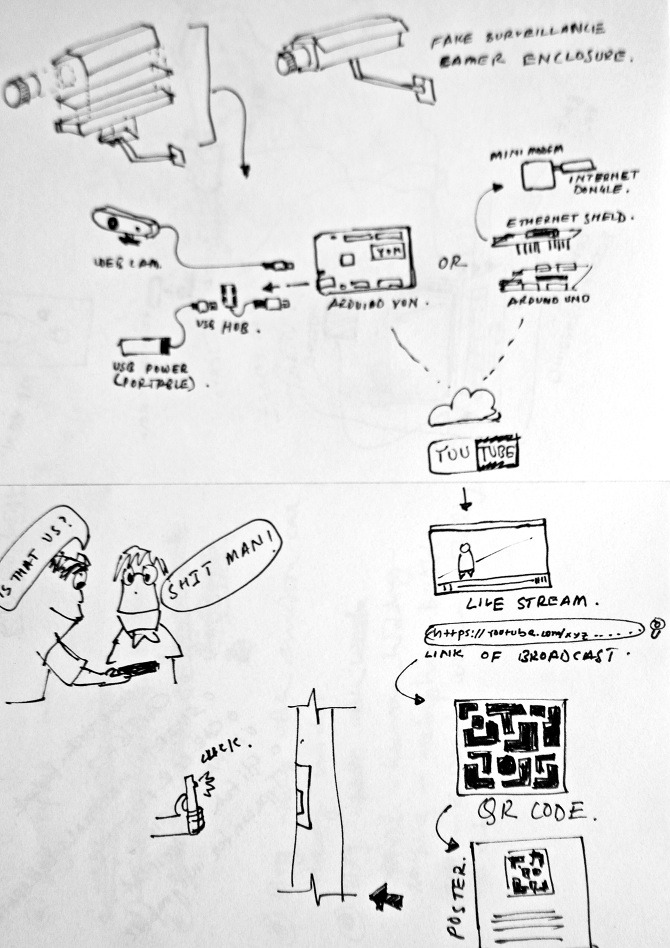 FAKE SURVEILLANCE
CAMER ENCLOSURE.
MINI MODEM
INTERNET
DONGLE.
ETHERNET SHEILD.
WEB CAM.
YUN
OR
ARDUINO YUN.
ARDUINO UNO
USB HUB.
USB POWER
(PORTABLE).
YOU TUBE
LIVE STREAM.
https://youtube.com/xyz......
LINK OF BROADCAST.
IS THAT US?
SHIT MAN!
CLICK.
QR CODE.
POSTER.